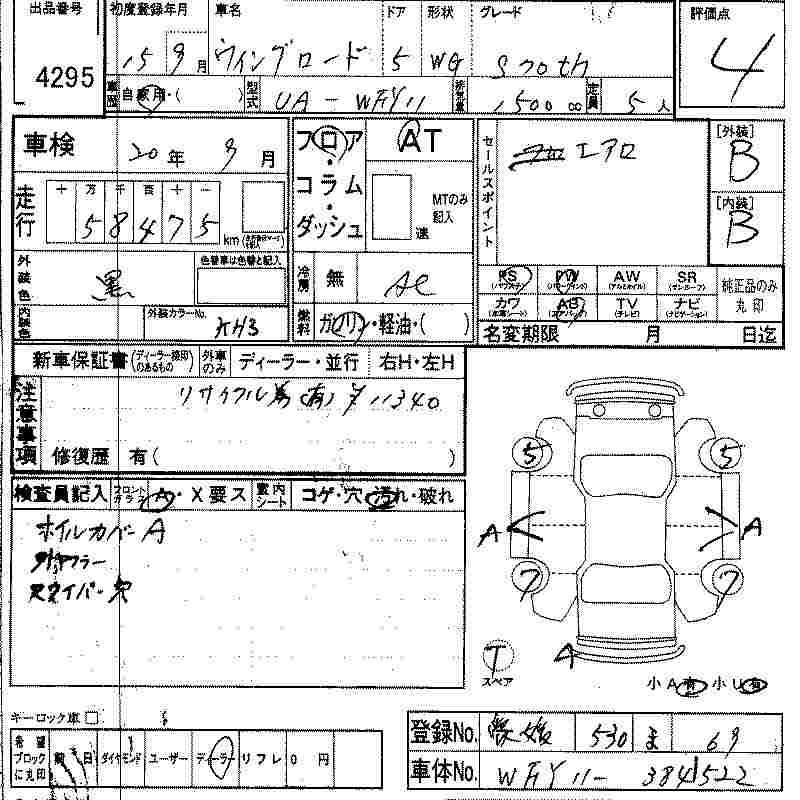 出品番号 4295
初度登録年月 15 9月
車名 ウィングロード
ドア 5
形状 WG
グレード
評価点 4
車歴 自家用・( )
型式 UA-WFY11
排気量 1500cc
定員 5人
車検 20年 9月
フロア・コラム・ダッシュ
AT
MTのみ記入
速
セールスポイント エアロ
[外装] B
[内装] B
走行 十 万 千 百 十 一
58475 km
外装色 黒
色替車は色替と記入
内装色
外装カラーNo. KH3
冷房 無 AC
燃料 ガソリン・軽油・( )
PS PW AW SR
(パワステ) (パワーウインド) (アルミホイル) (サンルーフ)
カワ AB TV ナビ
(本革シート) (エアバック) (テレビ) (ナビゲーション)
純正品のみ丸印
名変期限 月 日迄
新車保証書(ディーラー捺印のあるもの)
外車のみ ディーラー・並行 右H・左H
注意事項
リサイクル券(有)¥11340
修復歴 有( )
検査員記入 フロントガラス A・X要ス
室内シート コゲ・穴・汚れ・破れ
ホイルカバーA
穴
5 5
A A
7 7
T スペア
A
小A有 小U有
キーロック車
希望ブロックに丸印 日 ダイヤモンド ユーザー ディーラー リフレ 0円
登録No. 愛媛 530 ま 69
車体No. WFY11-384522